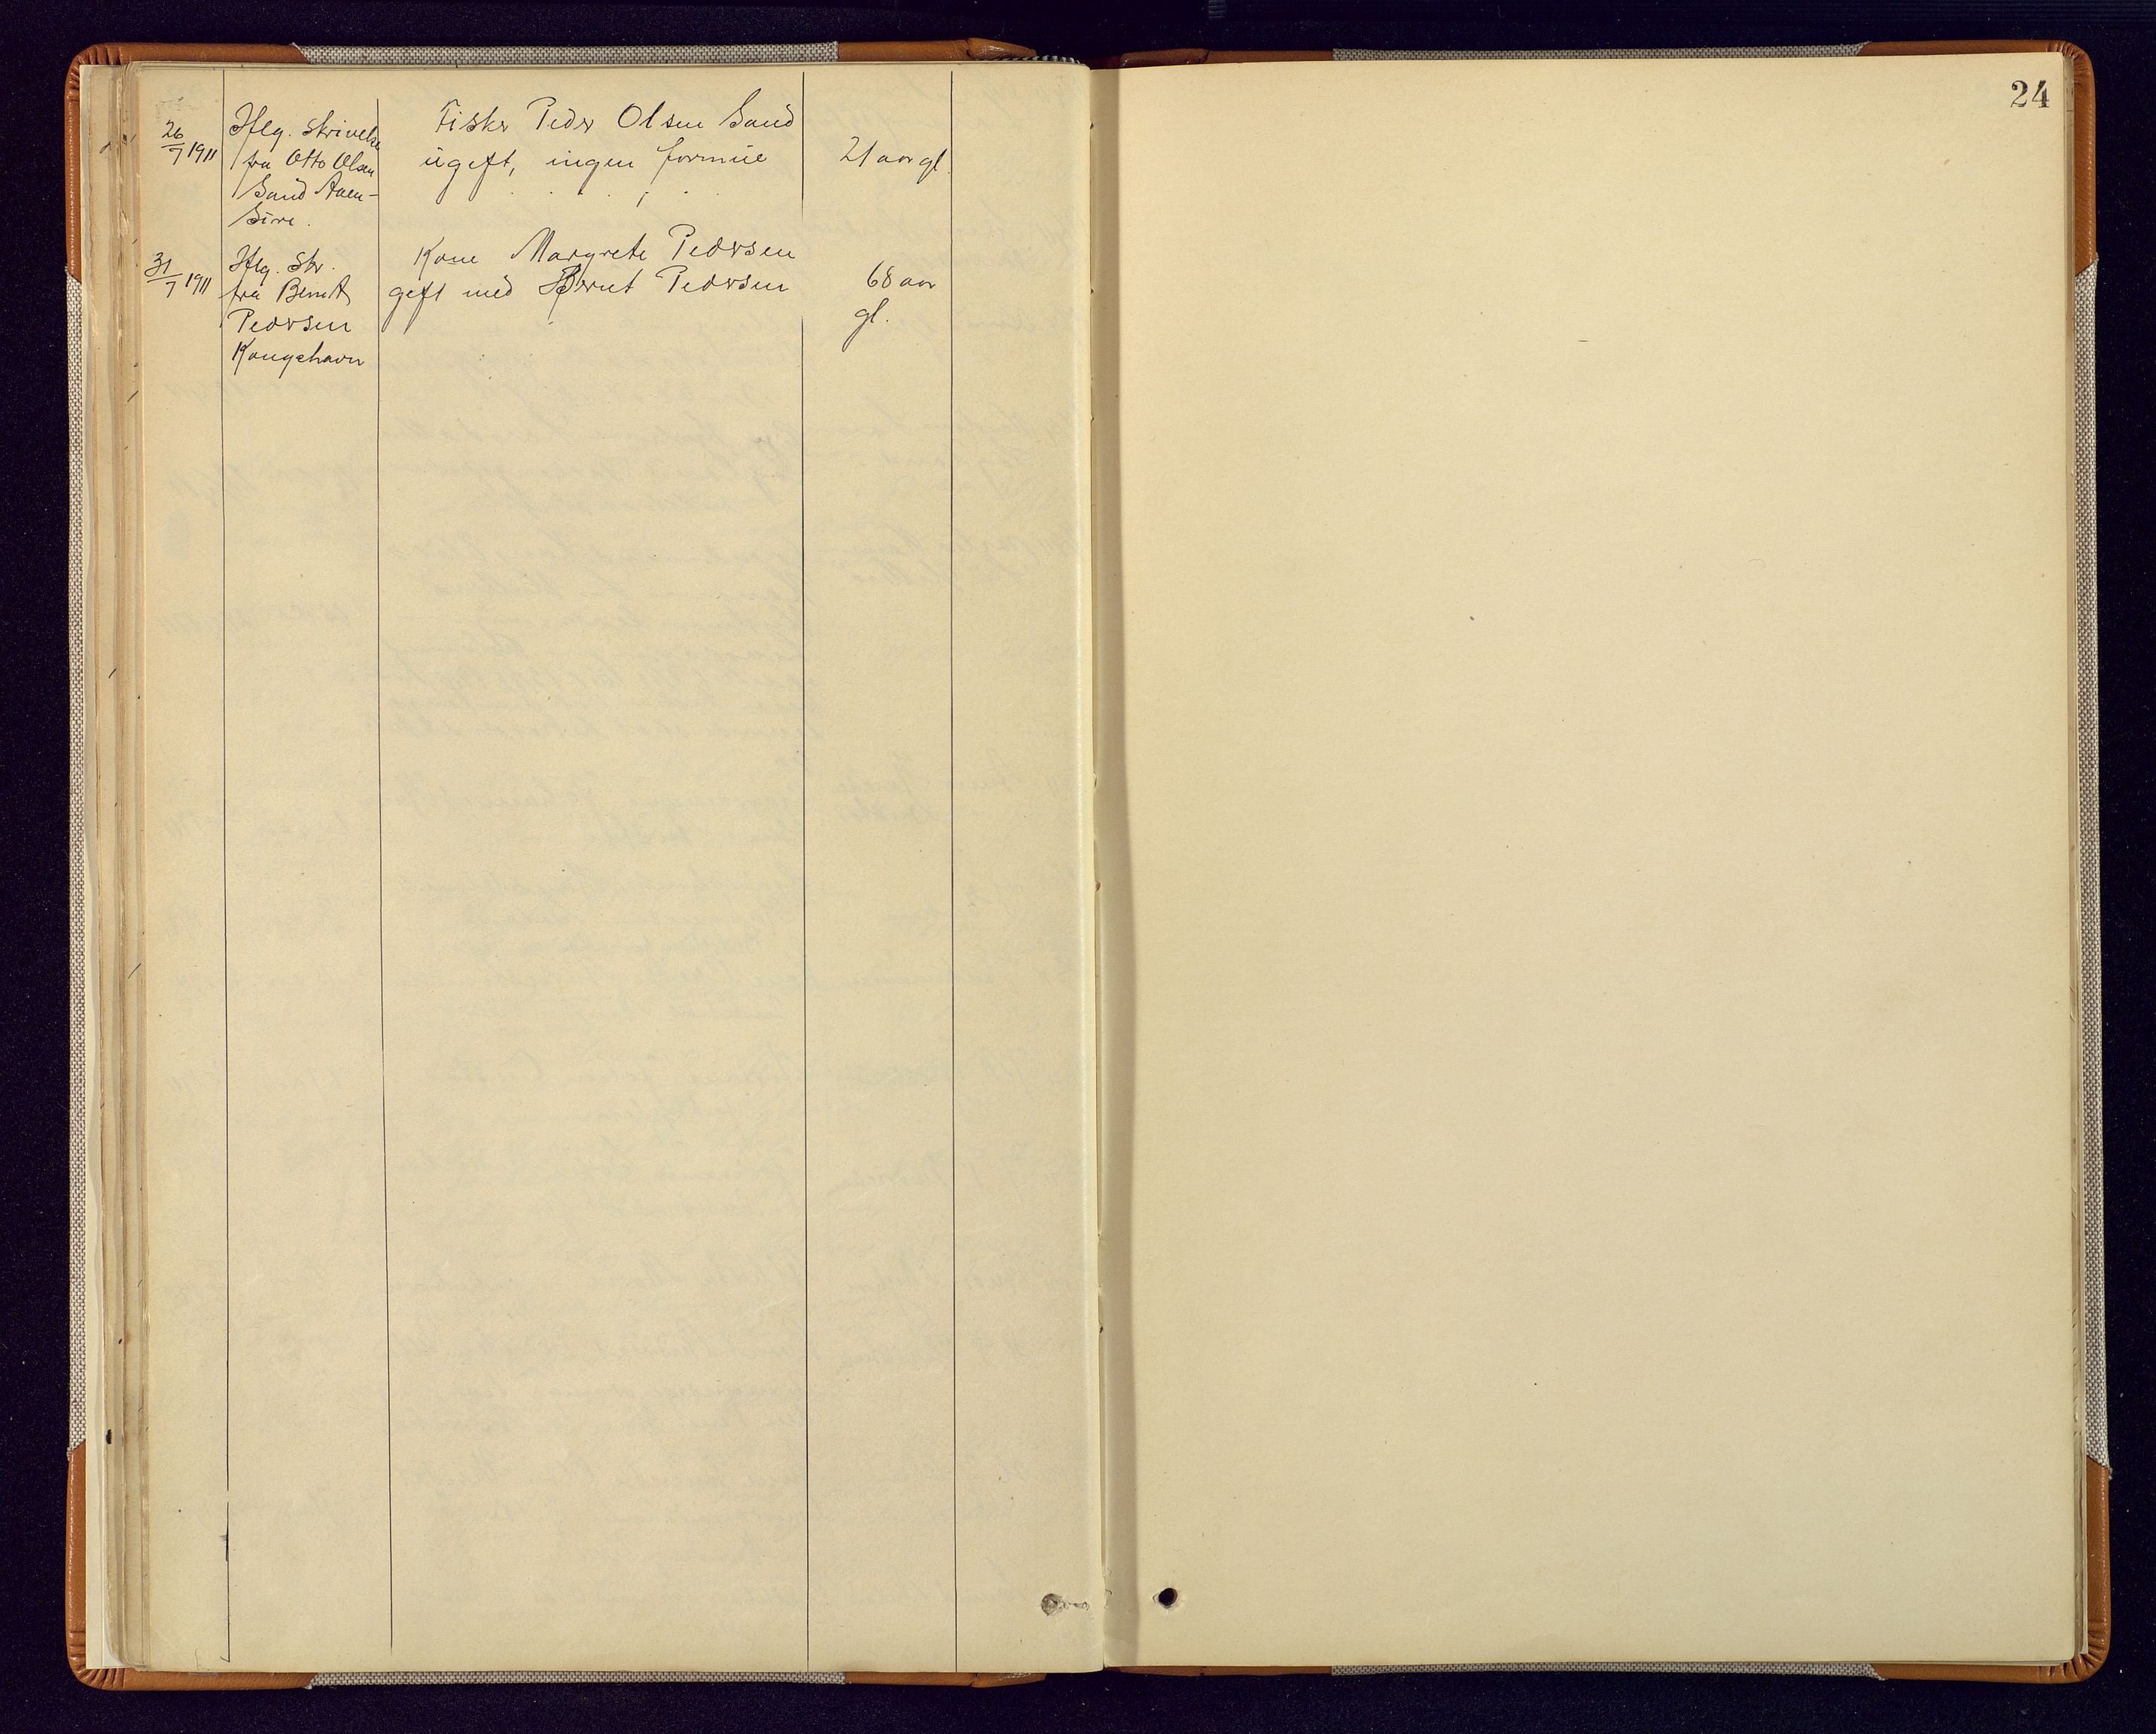 24
26/7 1911
Iflg. Skrivelse
fra Otto Olsen
Sand Aaen-
Sire.
Fisker Peder Olsen Sand
ugift, ingen formue
21 aar gl.
31/7 1911
Iflg. Skr.
fra Bernt
Pedersen
Kongshavn
Kone Margrete Pedersen
gift med Bernt Pedersen
68 aar
gl.